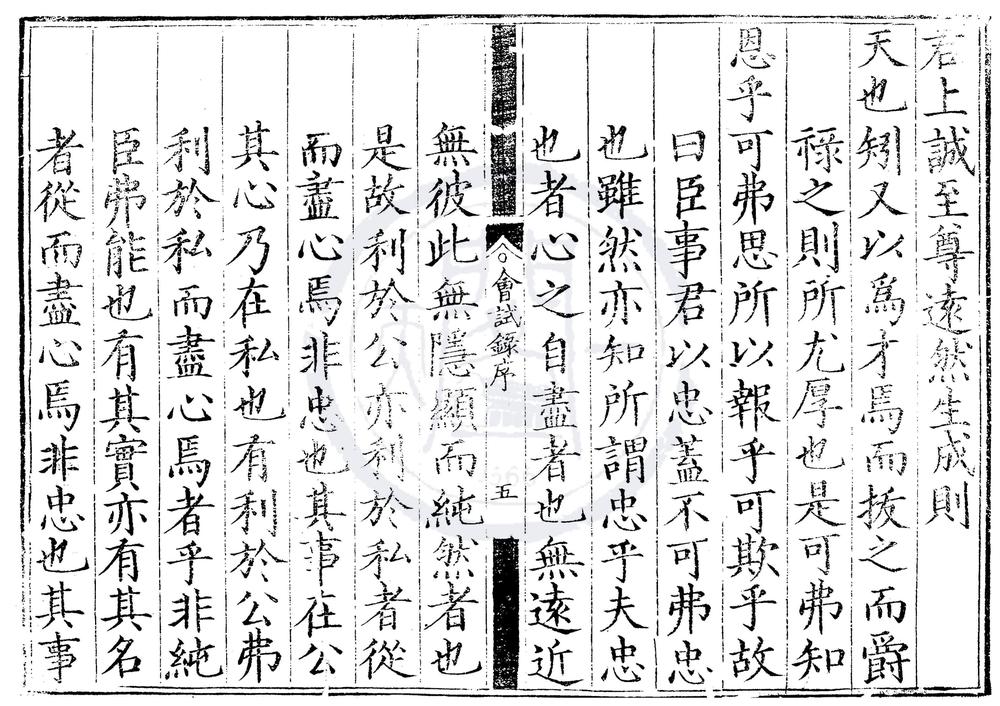 君上誠至尊遠然生成則
天也矧又以爲才焉而拔之而爵
祿之則所尤厚也是可弗知
恩乎可弗思所以報乎可欺乎故
曰臣事君以忠蓋不可弗忠
也雖然亦知所謂忠乎夫忠
也者心之自盡者也無遠近
會試錄序
五
無彼此無隱顯而純然者也
是故利於公亦利於私者從
而盡心焉非忠也其事在公
其心乃在私也有利於公弗
利於私而盡心焉者乎非純
臣弗能也有其實亦有其名
者從而盡心焉非忠也其事